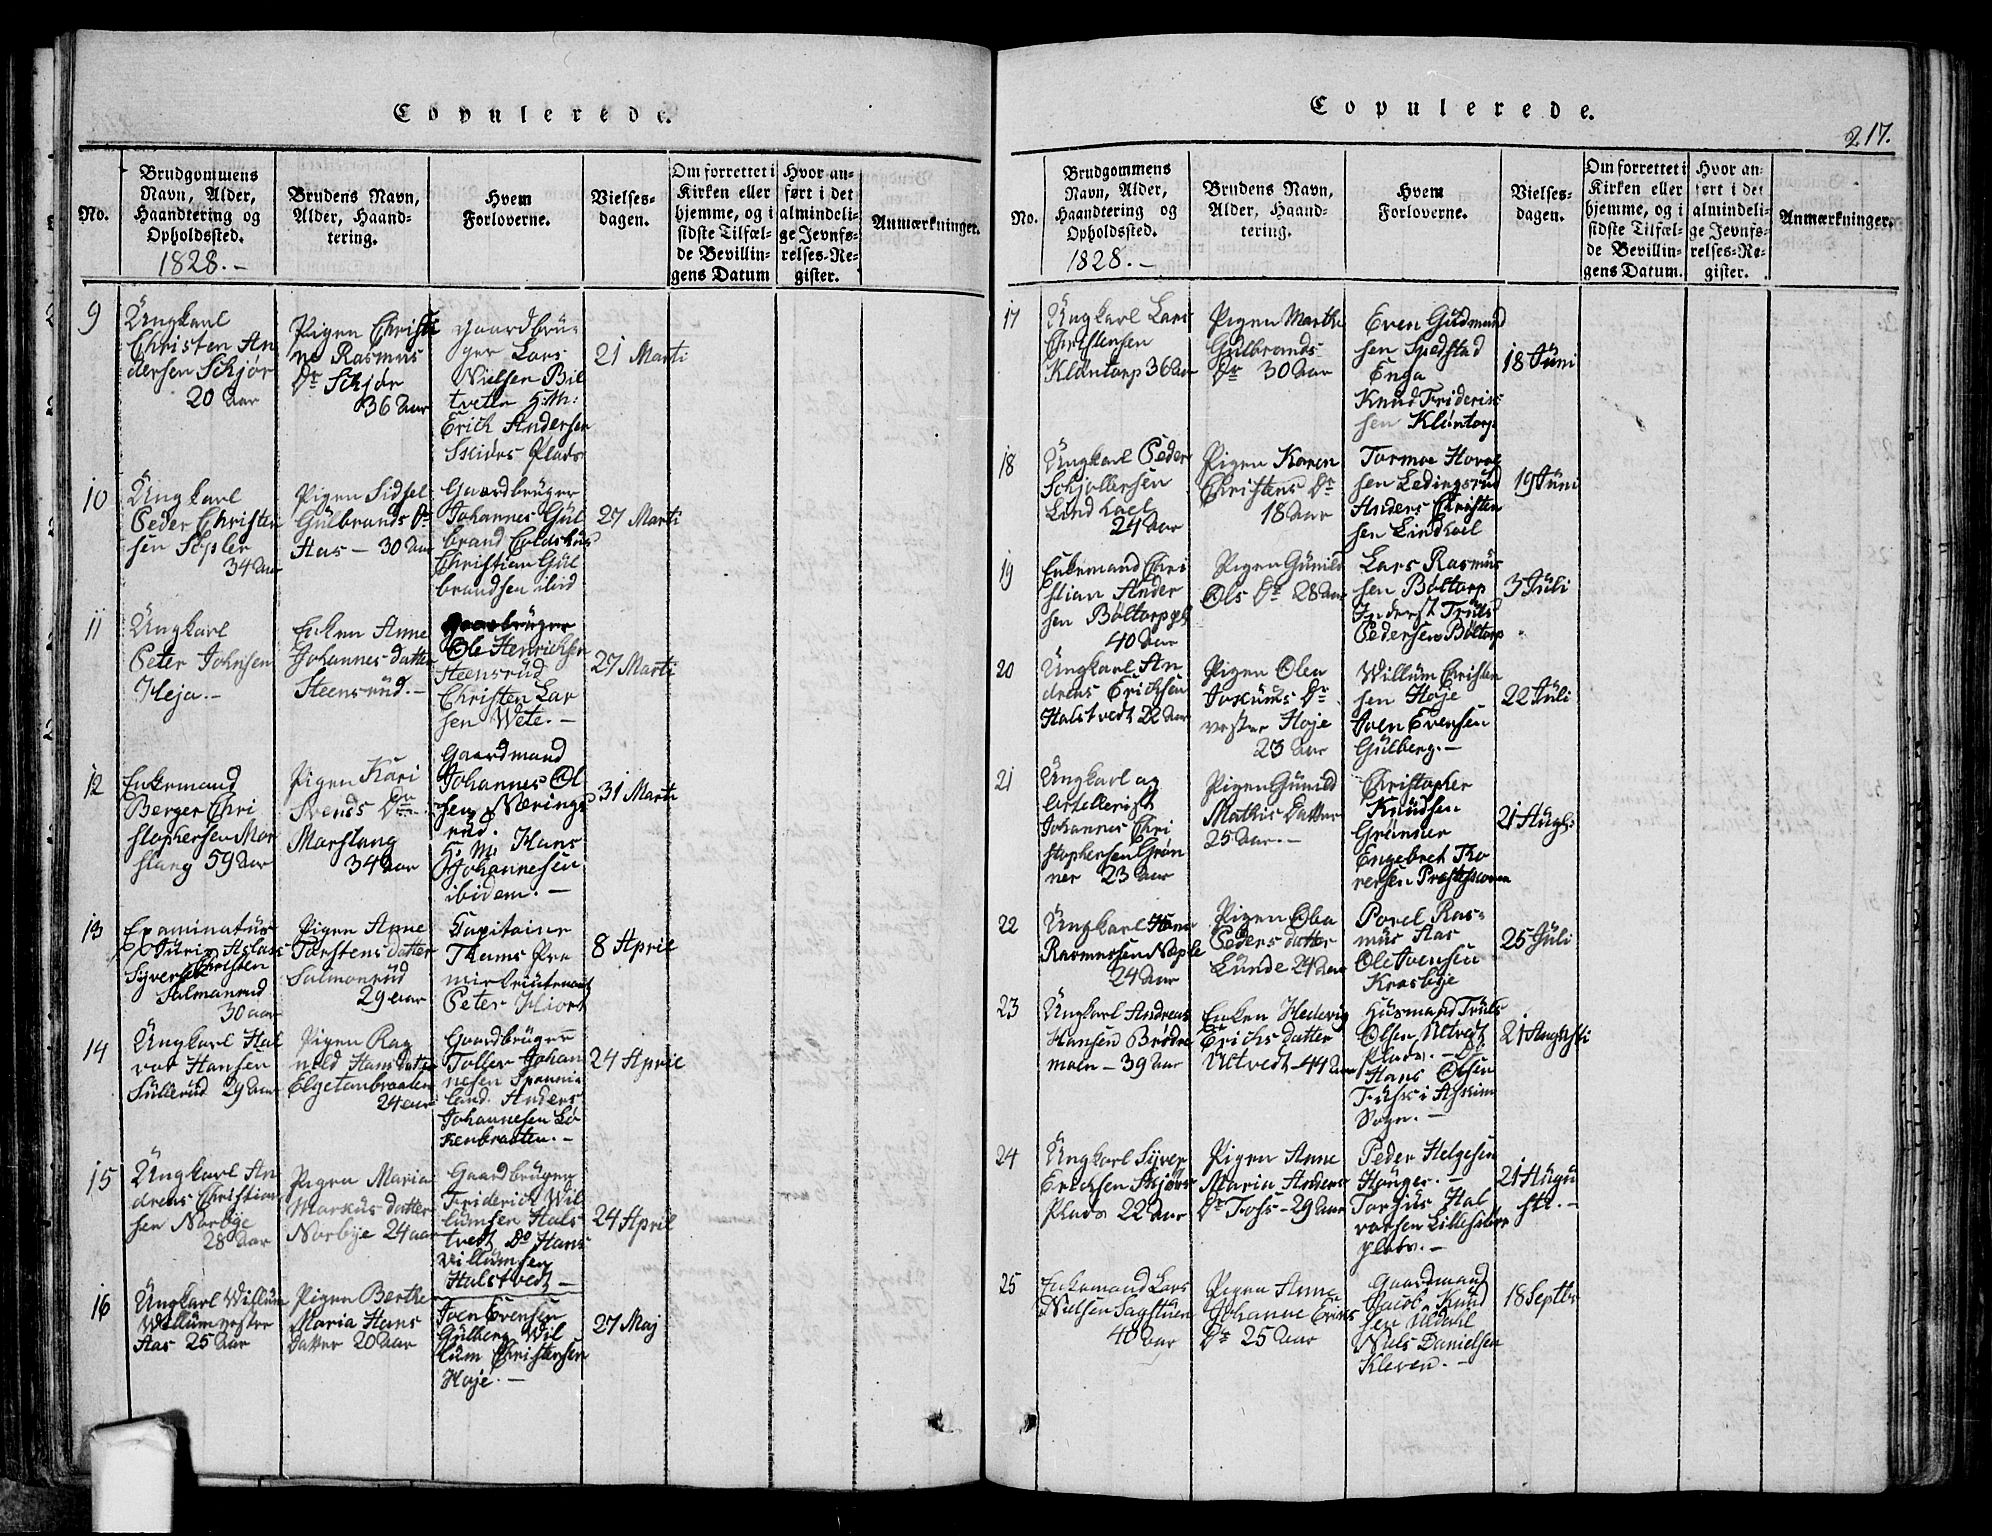 Copulerede.
No.
Brudgommens
Navn, Alder,
Haandtering og
Opholdssted.
1828.-
Brudens Navn,
Alder, Haand-
tering.
Hvem
Forloverne.
Vielses-
dagen.
Om forrettet i
Kirken eller
hjemme, og i
sidste Tilfæl-
de Bevillin-
gens Datum
Hvor an-
ført i det
almindeli-
ge Jevnfø-
relses-Re-
gister.
Anmærkninger.
9
Ungkarl
Christen An
dersen Skjør
20 Aar
Pigen Christi
ne Rasmus
Dr Skjør
36 Aar
Gaardbru-
ger Lars
Nielsen Bil
tvete H: M:
Erick Andersen
Skiörs Plads
21 Marti
10
Ungkarl
Peder Christen
sen
34 Aar
Pigen Sidsel
Gulbrands Dr
Aas - 30 Aar
Gaardbruger
Johannes Gul
brand
Christian Gul
brandsen ibid
27 Marti
11
Ungkarl
Peter Johnsen
Heja.-
Enken Anne
Johannesdatter
Steensrud.-
Gaardbruger
Ole Henrichsen
Steensrud
Christen Lar
sen Wete.-
27 Marti
12
Enkemand
Berger Chri
stophersen Mor
stang 59 Aar
Pigen Kari
Svends Dr
Morstang
34 Aar
Gaardmand
Johannes Ol
sen Nærings
rud.
H: M: Hans
Johannesen
ibidem.-
31 Marti
13
Examinatus
Juris Aslach
Syversen Christen
Salmanrud
30 aar
Pigen Anne
Torstensdatter
Salmonrud
29 aar
Capitaine
Thams Pre
mierlieutenant
Peter Hiort
8 April
14
Ungkarl Hal
vor Hansen
Sullerud 29 Aar
Pigen Rag
nild Hansdatter
Elgetunbraaten
24 aar
Gaardbruger
Toller Johan
nesen Sponni
land. Anders
Johannesen Lø
kenbraaten.-
24 April
15
Ungkarl An
dreas Christian
sen Norbye
28 Aar
Pigen Maria
Markusdatter
Norbye 24 aar
Gaardbruger
Friderick Wil
lumsen Hals
tvedt Do Hans
Villumsen
Halstvedt -
24 April
16
Ungkarl Willum
Willum vestre
Aas 25 Aar
Pigen Berthe
Maria Hans
Datter 20 Aar
Joen Evensen
Gulberg Wil
lum Christensen
Høje.-
27 Maj
Copulerede.
217.
No.
Brudgommens
Navn, Alder,
Haandtering og
Opholdssted.
1828.-
Brudens Navn,
Alder, Haand-
tering.
Hvem
Forloverne.
Vielses-
dagen.
Om forrettet i
Kirken eller
hjemme, og i
sidste Tilfæl-
de Bevillin-
gens Datum.
Hvor an-
ført i det
almindeli-
ge Jevnfø-
relses-Re-
gister.
Anmærkninger.
17
Ungkarl Lars
Christensen
Klontorp 36 Aar
Pigen Marthe
Gulbrands
Dr 30 Aar
Even Gudmund
sen Spedstad
Enga
Knud Friderik
sen Kløntorp
18 Juni
18
Ungkarl Peder
Schjollersen
Lindkoel
24 Aar
Pigen Karen
Christens Dr
18 Aar
Tormoe Hovel
sen Ledingsrud
Anders Christen
sen Lindkoel
19 Juni
19
Enkemand Chri
stian Ander
sen Bøltorp
40 Aar
Pigen Gunild
Ols Dr 28 Aar
Lars Rasmus
sen Bøltorp
Inderst Truls
Pedersen Bøltorp
3 Juli
20
Ungkarl An
dreas Ericksen
Halstvedt 22 Aar
Pigen Olea
Joxums Dr
vester Høje
23 Aar
Willum Christen
sen Høje
Joen Evensen
Gulberg.-
22 Juli
21
Ungkarl og
Artellerist
Johannes Chri
stophersen Grøn
ner 23 Aar
Pigen Gunild
Mathis Datter
25 Aar.-
Christopher
Knudsen
Grønner
Engebret Tho
rersen Prestskoven
21 Augs.
22
Ungkarl Hans
Rasmussen Næple
24 Aar
Pigen Oba
Pedersdatter
Lunde 24 Aar
Povel Ras-
mus Aas
Ole Joensen
Krosbye
25 Juli
23
Ungkarl Andreas
Hansen Brødre
moen - 39 Aar
Enken Hedevig
Erichsdatter
Utvedt - 44 Aar
Husmand Truls
Olsen Utvedt
Plads.- Do
Hans Olsen
Fusk i Askim
Sogn.-
21 Augusti
24
Ungkarl Syver
Ericksen Skjørs
Plads 22 Aar
Pigen Anne
Maria Anders
Dr Foss - 29 Aar
Peder Helgesen
Hauger.-
Torjus Hal
vorsen Lillesibre
plads.-
21 Augu
sti.-
25
Enkemand Lars
Nielsen Sagstuen
40 Aar
Pigen Anne
Johanne Erics
Dr 25 Aar
Gaardmand
Jacob Knud
sen Uldahl
Niels Danielsen
Kleven.-
18 Septbr